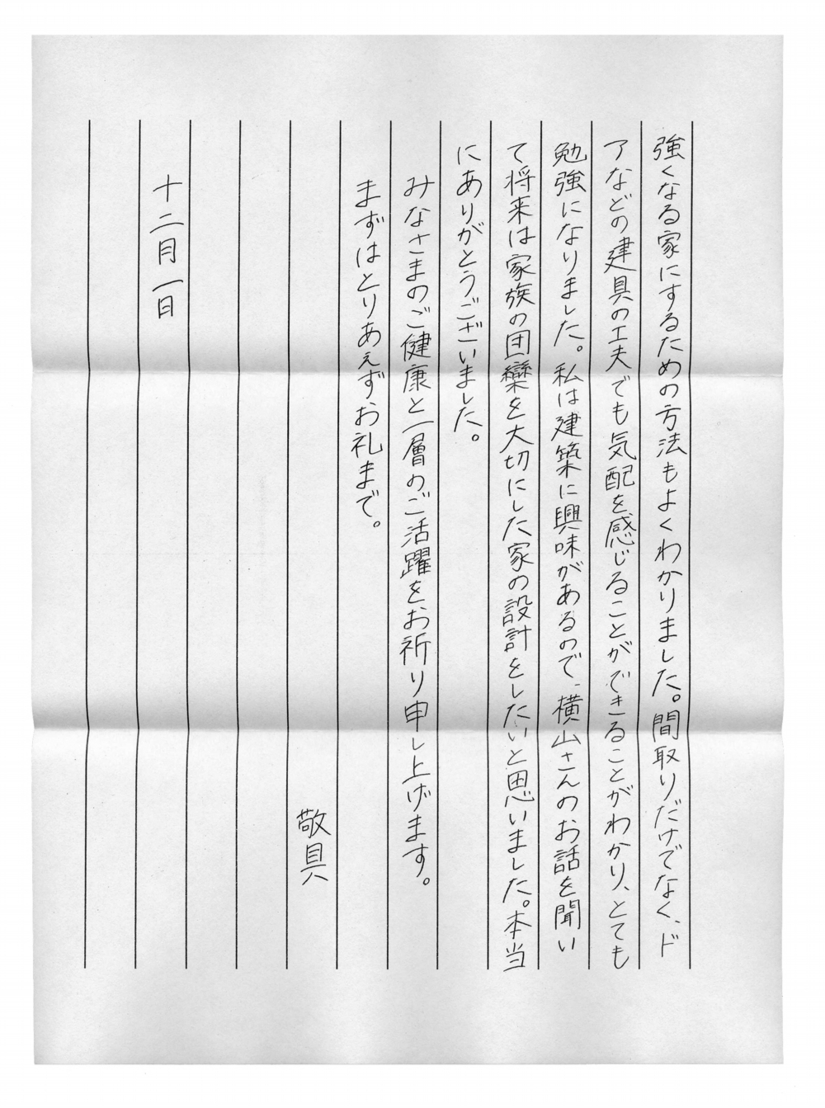 強くなる家にするための方法もよくわかりました。間取りだけでなく、ド
アなどの建具の工夫でも気配を感じることができることがわかり、とても
勉強になりました。私は建築に興味があるので、横山さんのお話を聞い
て将来は家族の団欒を大切にした家の設計をしたいと思いました。本当
にありがとうございました。
みなさまのご健康と一層のご活躍をお祈り申し上げます。
まずはとりあえずお礼まで。
敬具
十二月一日